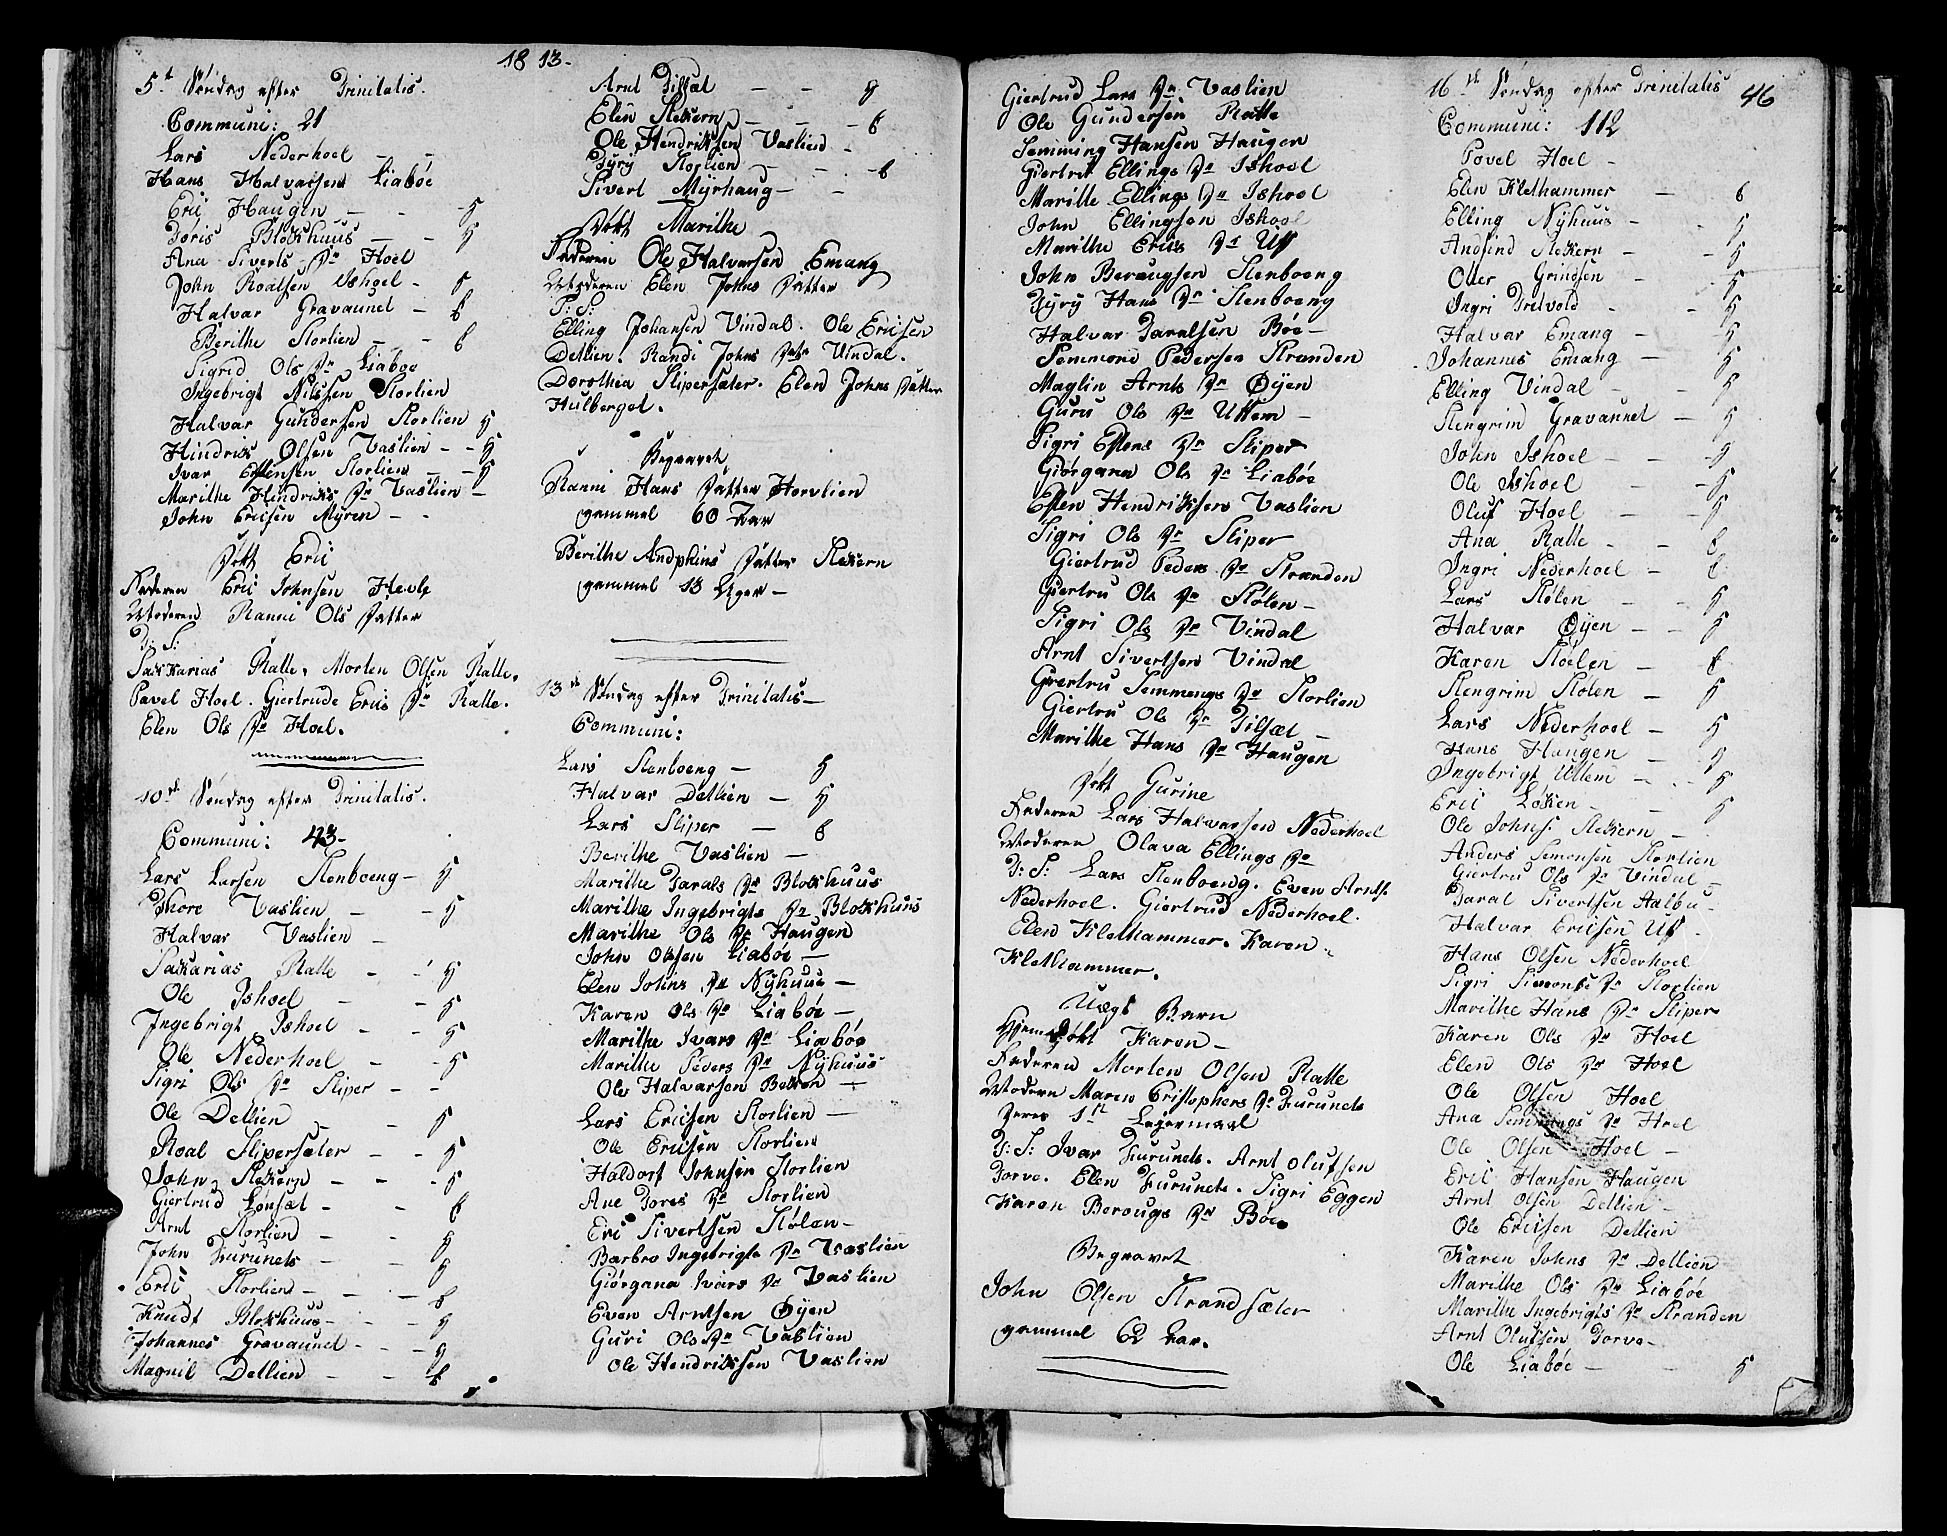 1813.
5t Søndag efter Trinitatis.
Communi: 21
Lars Nederhoel - -
Hans Halvarsen Liabøe
Eric Haugen - - 5
Doris Blokhuus - - 5
Ana Siverts Dr Hoel
John Roalsen Ishoel - 5
Halvar Gravaunet - 6
Berithe Storlien - - 6
Sigrid Ols Dr Liaboe
Ingebrigt Nilssen Storlien
Halvar Gundersen Storlien 5
Hindrik Olsen Vaslien - - 5
Ivar Estensen Storlien - - 5
Marithe Hendriks Dr Vaslien -
John Ericsen Myren - -
Døbt Eric
Faderen Eric Johnsen Hevle
Moderen Ranni Ols Datter
D: S:
Sakkarias Ratte, Morten Olsen Ratte,
Pavel Hoel. Giertrude Erics Dr Ratte.
Elen Ols Dr Hoel.
10de Søndag efter Trinitatis.
Communi: 43-
Lars Larsen Stenboeng - 5
Thore Vaslien - - 5
Halvar Vaslien -
Sakarias Ratte - - 5
Ole Ishoel - - 5
Ingebrigt Ishoel - - 5
Ole Nederhoel - - 5
Sigri Ols Dr Sliper - -
Ole Detlien - - 5
Roal Slipersæter - - 5
John Stekern - - - 5
Giertrud Lønsæt - - 6
Arnt Storlien - - 5
John Furunets - - 5
Eric Storlien - - - 6
Knudt Blokhuus - - - 5
Johannes Gravaunet - - - 5
Magnil Detlien - - 6
Arnt Tilsæt - - 5
Elen Stekern - - - 6
Ole Hendriksen Vaslien -
Gyry Storlien - - - 6
Sivert Myrhaug - -
Døbt Marithe
Faderen Ole Halvarsen Emang
Moderen Elen Johns Datter
D: S:
Elling Johansen Vindal. Ole Ericsen
Detlien. Randi Johns Datr Vindal.
Dorothea Slipersæter. Elen Johns Datter
Hulberget.
Begravet
Ranni Hans Datter Horvlien
gammel 60 Aar
Berithe Datter Stekern
gammel 18 Uger -
13de Søndag efter Trinitatis -
Communi:
Lars Stenboeng - 5
Halvar Detlien - 5
Lars Sliper - 6
Berithe Vaslien -
Marithe Tarals Dr Blokhuus
Marithe Ingebrigts Dr Blokhuus
Marithe Ols Dr Haugen
John Olsen Liabøe -
Elen Johns Dr Nyhuus -
Karen Ols Dr Liabøe -
Marithe Ivars Dr Liabøe
Marithe Peders Dr Nyhuus
Ole Halvarsen -
Lars Ericsen Storlien -
Ole Ericsen Storlien
Haldorf Johnsen Storlien
Ane Tores Dr Storlien
Eric Sivertsen Stølen -
Barbro Ingebrigts Dr Vaslien
Giørgana Ivars Dr Vaslien
Even Arntsen Øyen
Guri Ols Dr Vaslien
Ole Hendriksen Vaslien
Giertrud Lars Dr Vaslien
Ole Gundersen Ratte
Semming Hansen Haugen
Giertru Ellings Dr Ishoel
Marithe Ellings Dr Ishoel
John Ellingsen Ishoel
Marithe Erics Dr Uf
John Beraugsen Stenboeng
Gyry Hans Dr Stenboeng
Halvar Taralsen Bøe -
Sommone Pedersen Stranden
Maglin Arnts Dr Øyen
Guru Ols Dr Uttem -
Sigri Estens Dr Sliper
Giørgana Ols Dr Liabøe
Esten Hendriksen Vaslien
Sigri Ols Dr Sliper
Giertrud Peders Dr Stranden
Giertru Ols Dr Stølen -
Sigri Ols Dr Vindal
Arnt Sivertsen Vindal
Giertru Semmings Dr Storlien
Giertru Ols Dr Tilsæt -
Marithe Hans Dr Haugen
Døbt Gurine
Faderen Lars Halvarsen Nederhoel
Moderen Olava Ellings Dr
D: S: Lars Stenboeng. Even Arnts.
Nederhoel. Giertrud Nederhoel.
Elen Klethammer. Karen
Klethammer.
Uægt Barn
Hjemdøbt Karen -
Faderen Morten Olsen Ratte
Moderen Maren Cristophers Dr Furunets
Deres 1st Leiermaal
D: S: Ivar Furunets. Arnt Olufsen
Torve. Elen Furunets. Sigri Eggen
Karen Berougs Dr Bøe
Begravet
John Olsen Strandsæter
gammel 62 Aar.
46
16de Søndag efter Trinitatis
Communi: 112
Povel Hoel -
Elen Klethammer - 6
Elling Nyhuus - 5
Andsind Stekern - - 5
Oller Grindsen - 5
Ingri Tretvold - - 5
Halvar Emang - 5
Johannes Emang - 5
Elling Vindal - - 5
Stengrim Gravaunet - 5
John Ishoel - - 5
Ole Ishoel - 5
Oluf Hoel - - 5
Ana Ratte - - 6
Ingri Nederhoel - 6
Lars Stølen - - 5
Halvar Øyen - - 5
Karen Stoelen - 6
Stengrim Stølen - 5
Lars Nederhoel - 5
Hans Haugen - 5
Ingebrigt Uttem - - 5
Eric Løken - - 5
Ole Johns: Stekern -
Anders Semonsen Storlien
Giertru Ols Dr Vindal -
Taral Sivertsen Aalbu -
Halvar Ericsen Uf -
Hans Olsen Nederhoel
Sigri Simons Dr Storlien
Marithe Hans Dr Sliper
Karen Ols Dr Hoel
Elen Ols Dr Hoel
Ole Olsen Hoel
Ana Semmings Dr Hoel
Ole Olsen Hoel -
Eric Hansen Haugen
Arnt Olsen Detlien -
Ole Ericsen Detlien
Karen Johns Dr Detlien
Marithe Ols Dr Liabøe
Marithe Ingebrigts Dr Stranden
Arnt Olufsen Torve -
Ole Liabøe - - 5